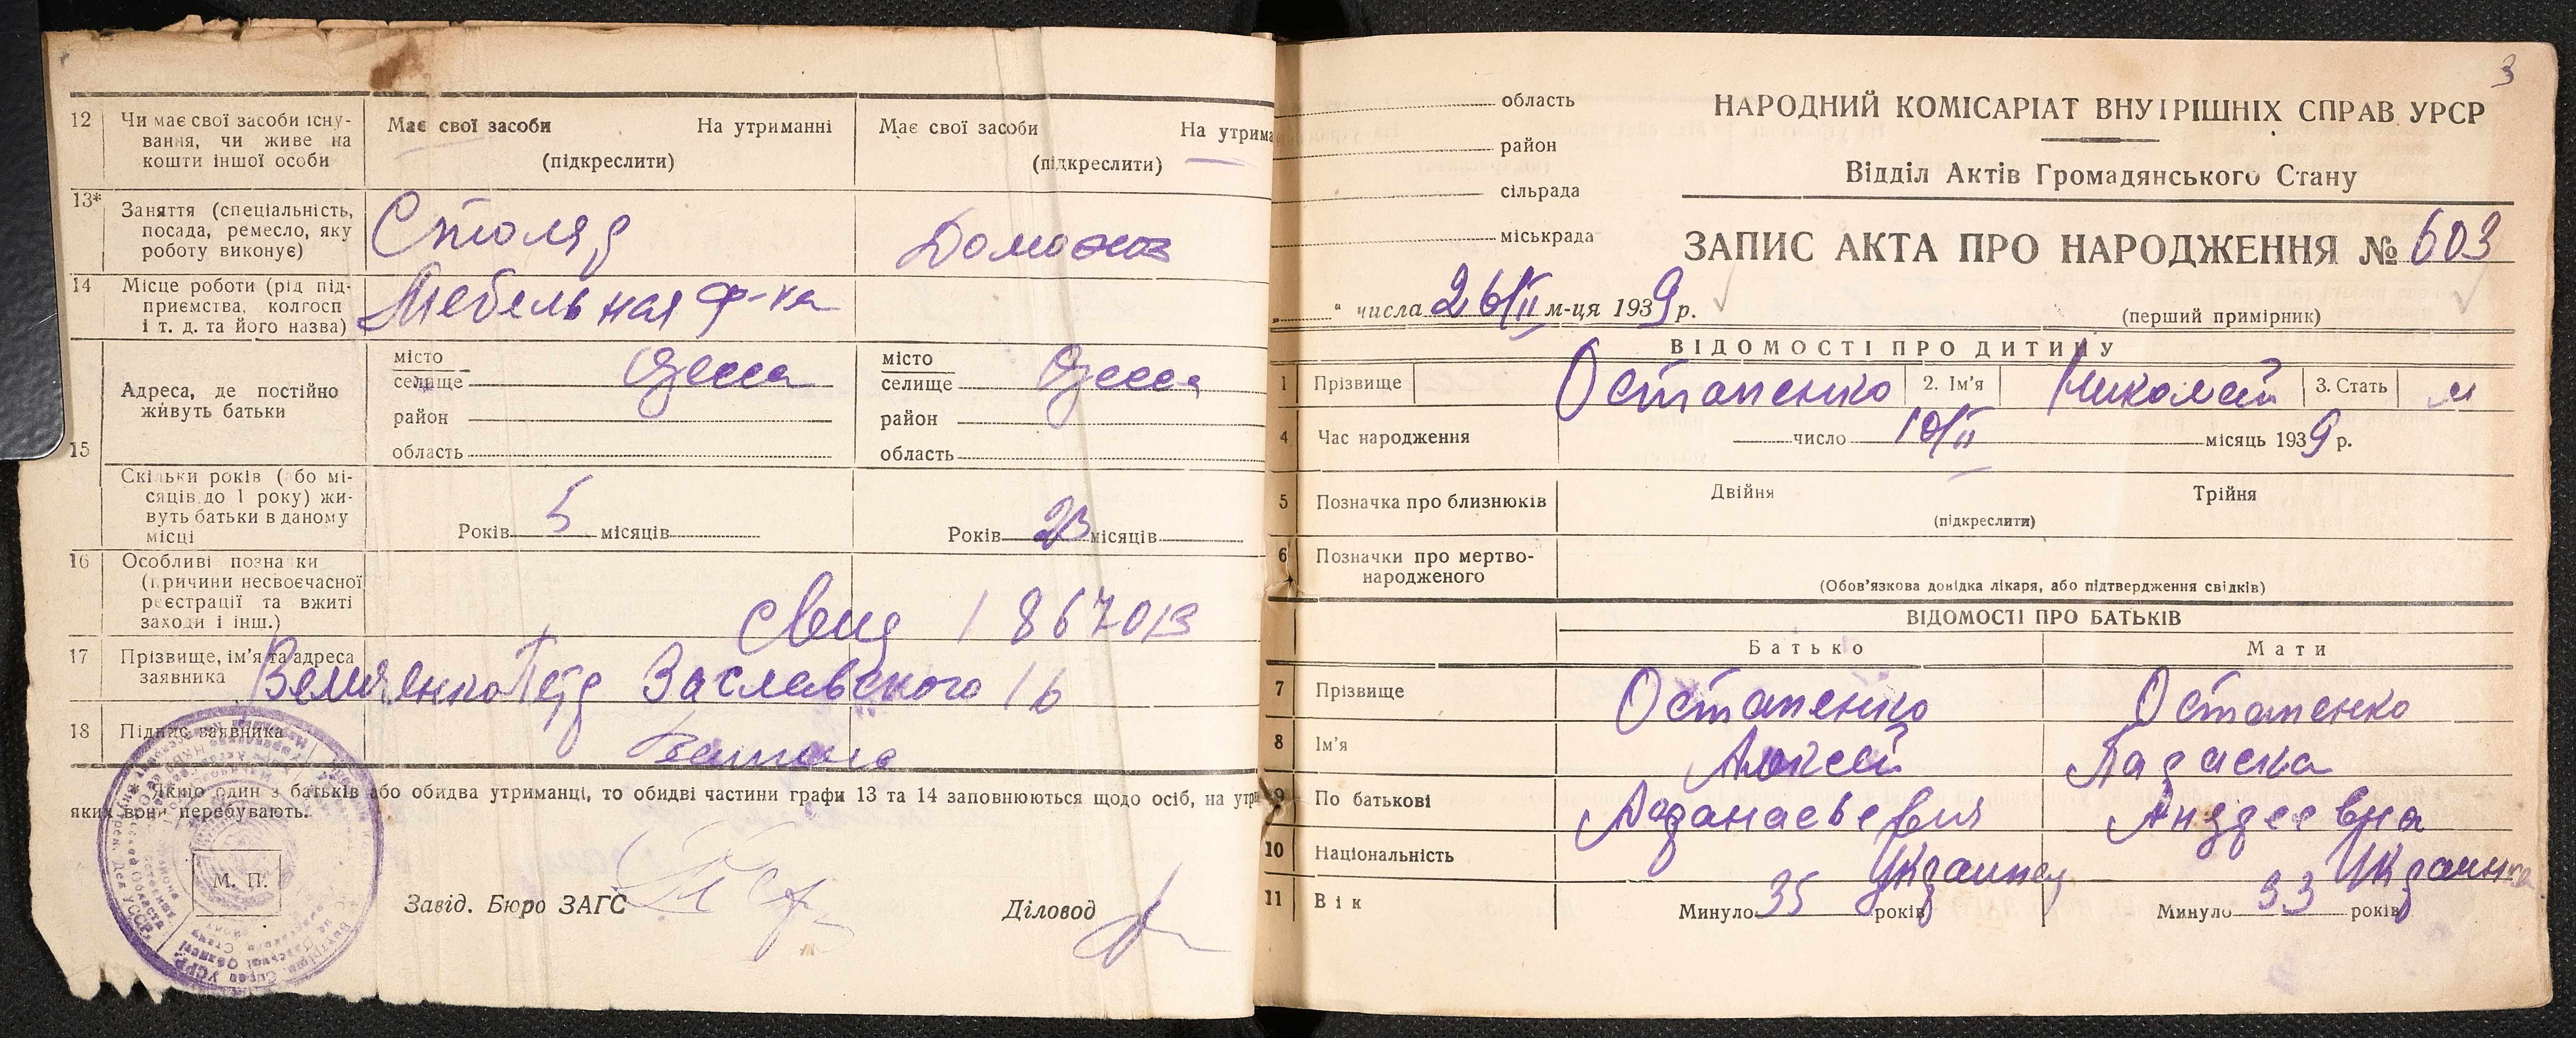 12 Чи має свої засоби існу-
вання, чи живе на
кошти іншої особи
Має свої засоби На утриманні
(підкреслити)
Має свої засоби На утрима
(підкреслити)
13* Заняття (спеціальність,
посада, ремесло, яку
роботу виконує)
Столяр
Домохоз
14 Місце роботи (рід під-
приємства, колгосп
і т. д. та його назва)
Мебельная ф-ка
15 Адреса, де постійно
живуть батьки
місто
селище Одесса
район
область
місто
селище Одесса
район
область
Скільки років (або мі-
сяців до 1 року) жи-
вуть батьки в даному
місці
Років 5 місяців
Років 23 місяців
16 Особливі позна ки
(причини несвоєчасної
реєстрації та вжиті
заходи і інш.)
17 Прізвище, ім'я та адреса
заявника
Петр Заславского 16
18 Підпис заявника
Якщо один з батьків або обидва утриманці, то обидві частини графи 13 та 14 заповнюються щодо осіб, на утри
яких вони перебувають.
М. П.
Завід. Бюро ЗАГС
Діловод
3
область
район
сільрада
міськрада
НАРОДНИЙ КОМІСАРІАТ ВНУТРІШНІХ СПРАВ УРСР
Відділ Актів Громадянського Стану
ЗАПИС АКТА ПРО НАРОДЖЕННЯ № 603
" числа 26/II м-ця 1939 р.
(перший примірник)
ВІДОМОСТІ ПРО ДИТИНУ
1 Прізвище Остапенко 2. Ім'я Николай 3. Стать м
4 Час народження число 10/II місяць 1939 р.
5 Позначка про близнюків Двійня Трійня
(підкреслити)
6 Позначки про мертво-
народженого
(Обов'язкова довідка лікаря, або підтвердження свідків)
ВІДОМОСТІ ПРО БАТЬКІВ
Батько Мати
7 Прізвище Остапенко Остапенко
8 Ім'я Алексей Параска
9 По батькові Афанасьевич Андреевна
10 Національність Украинец Украинка
11 Вік Минуло 35 років Минуло 33 років